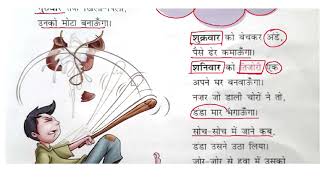 उनको मोटा बनाऊँगा।
शुक्रवार को बेचकर अंडे,
पैसे ढेर कमाऊँगा।
शनिवार को तिजोरी एक
अपने घर बनवाऊँगा।
नज़र जो डाली चोरों ने तो,
डंडा मार भगाऊँगा।
सोच-सोच में जाने कब,
डंडा उसने उठा लिया।
ज़ोर-ज़ोर से हवा में उसको